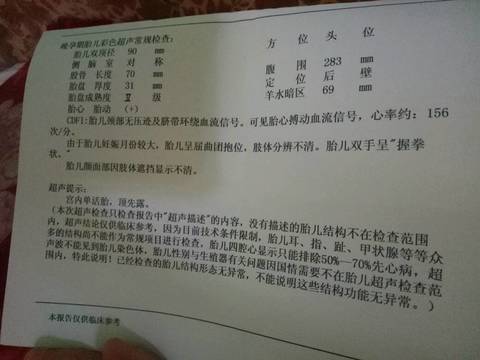 晚孕期胎儿彩色超声常规检查:
胎儿双顶径 90 mm 方位 头位
侧脑室 对称
股骨长度 70 mm 腹围 283 mm
胎盘厚度 31 mm 定位 后壁
胎盘成熟度 Ⅱ 级 羊水暗区 69 mm
胎心胎动 (+)
CDFI:胎儿颈部无压迹及脐带环绕血流信号。可见胎心搏动血流信号,心率约:156
次/分。
由于胎儿妊娠月份较大,胎儿呈屈曲团抱位,肢体分辨不清。胎儿双手呈"握拳
状。"
胎儿颜面部因肢体遮挡显示不清。
超声提示:
宫内单活胎,顶先露。
(本次超声检查只检查报告中"超声描述"的内容,没有描述的胎儿结构不在检查范围
内,超声结论仅供临床参考,因为目前技术条件限制,胎儿耳、指、趾、甲状腺等等众
多的结构尚不能作为常规项目进行检查,胎儿四腔心显示只能排除50%—70%先心病,超
声波不能见到胎儿染色体,胎儿性别与生殖器有关问题因国情需要不在胎儿超声检查范
围内,特此说明!已经检查的胎儿结构形态无异常,不能说明这些结构功能无异常。)
本报告仅供临床参考